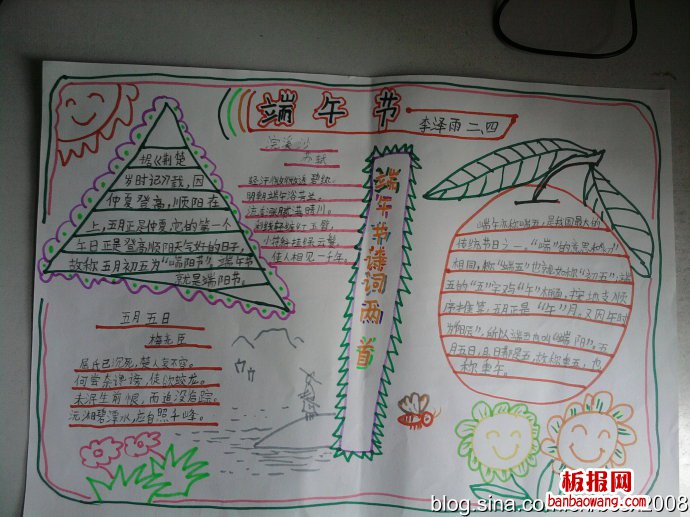 端午节
李泽雨 二、四
据《荆楚
岁时记》载，因
仲夏登高，顺阳在
上，五月正是仲夏，它的第一个
午日正是登高顺阳天气好的日子，
故称五月初五为“端阳节”。端午节
就是端阳节。
浣溪沙
苏轼
轻汗微微透碧纨，
明朝端午浴芳兰。
流香涨腻满晴川。
彩线轻缠红玉臂，
小符斜挂绿云鬟。
佳人相见一千年。
端午节诗词两首
端午亦称端五，是我国最大的
传统节日之一，“端”的意思和“初”
相同，称“端五”也就如称“初五”；端
五的“五”字又与“午”相通，按地支顺
序推算，五月正是“午”月。又因午时
为“阳辰”，所以端五也叫“端阳”。五
月五日，月日都是五，故称重五，也
称重午。
五月五日
梅尧臣
屈氏已沉死，楚人哀不容。
何尝奈谗谤，徒欲却蛟龙。
未泯生前恨，而追没后踪。
沅湘碧潭水，应自照千峰。
板报网
banbaowang.com